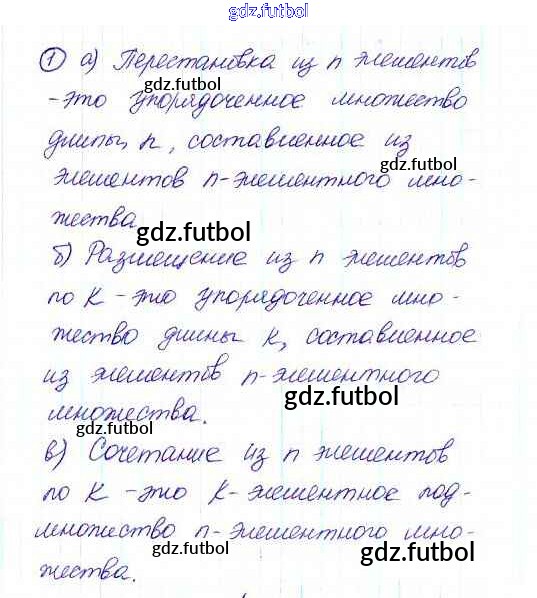 gdz.futbol
① а) Перестановка из n элементов
gdz.futbol
-это упорядоченное множество
длины n, составленное из
gdz.futbol
элементов n-элементного мно-
жества
gdz.futbol
б) Размещение из n элементов
по k - это упорядоченное мно-
жество длины k, составленное
из элементов n-элементного
gdz.futbol
множества.
gdz.futbol
в) Сочетание из n элементов
по k - это k-элементное под-
множество n-элементного мно-
gdz.futbol gdz.futbol
жества.